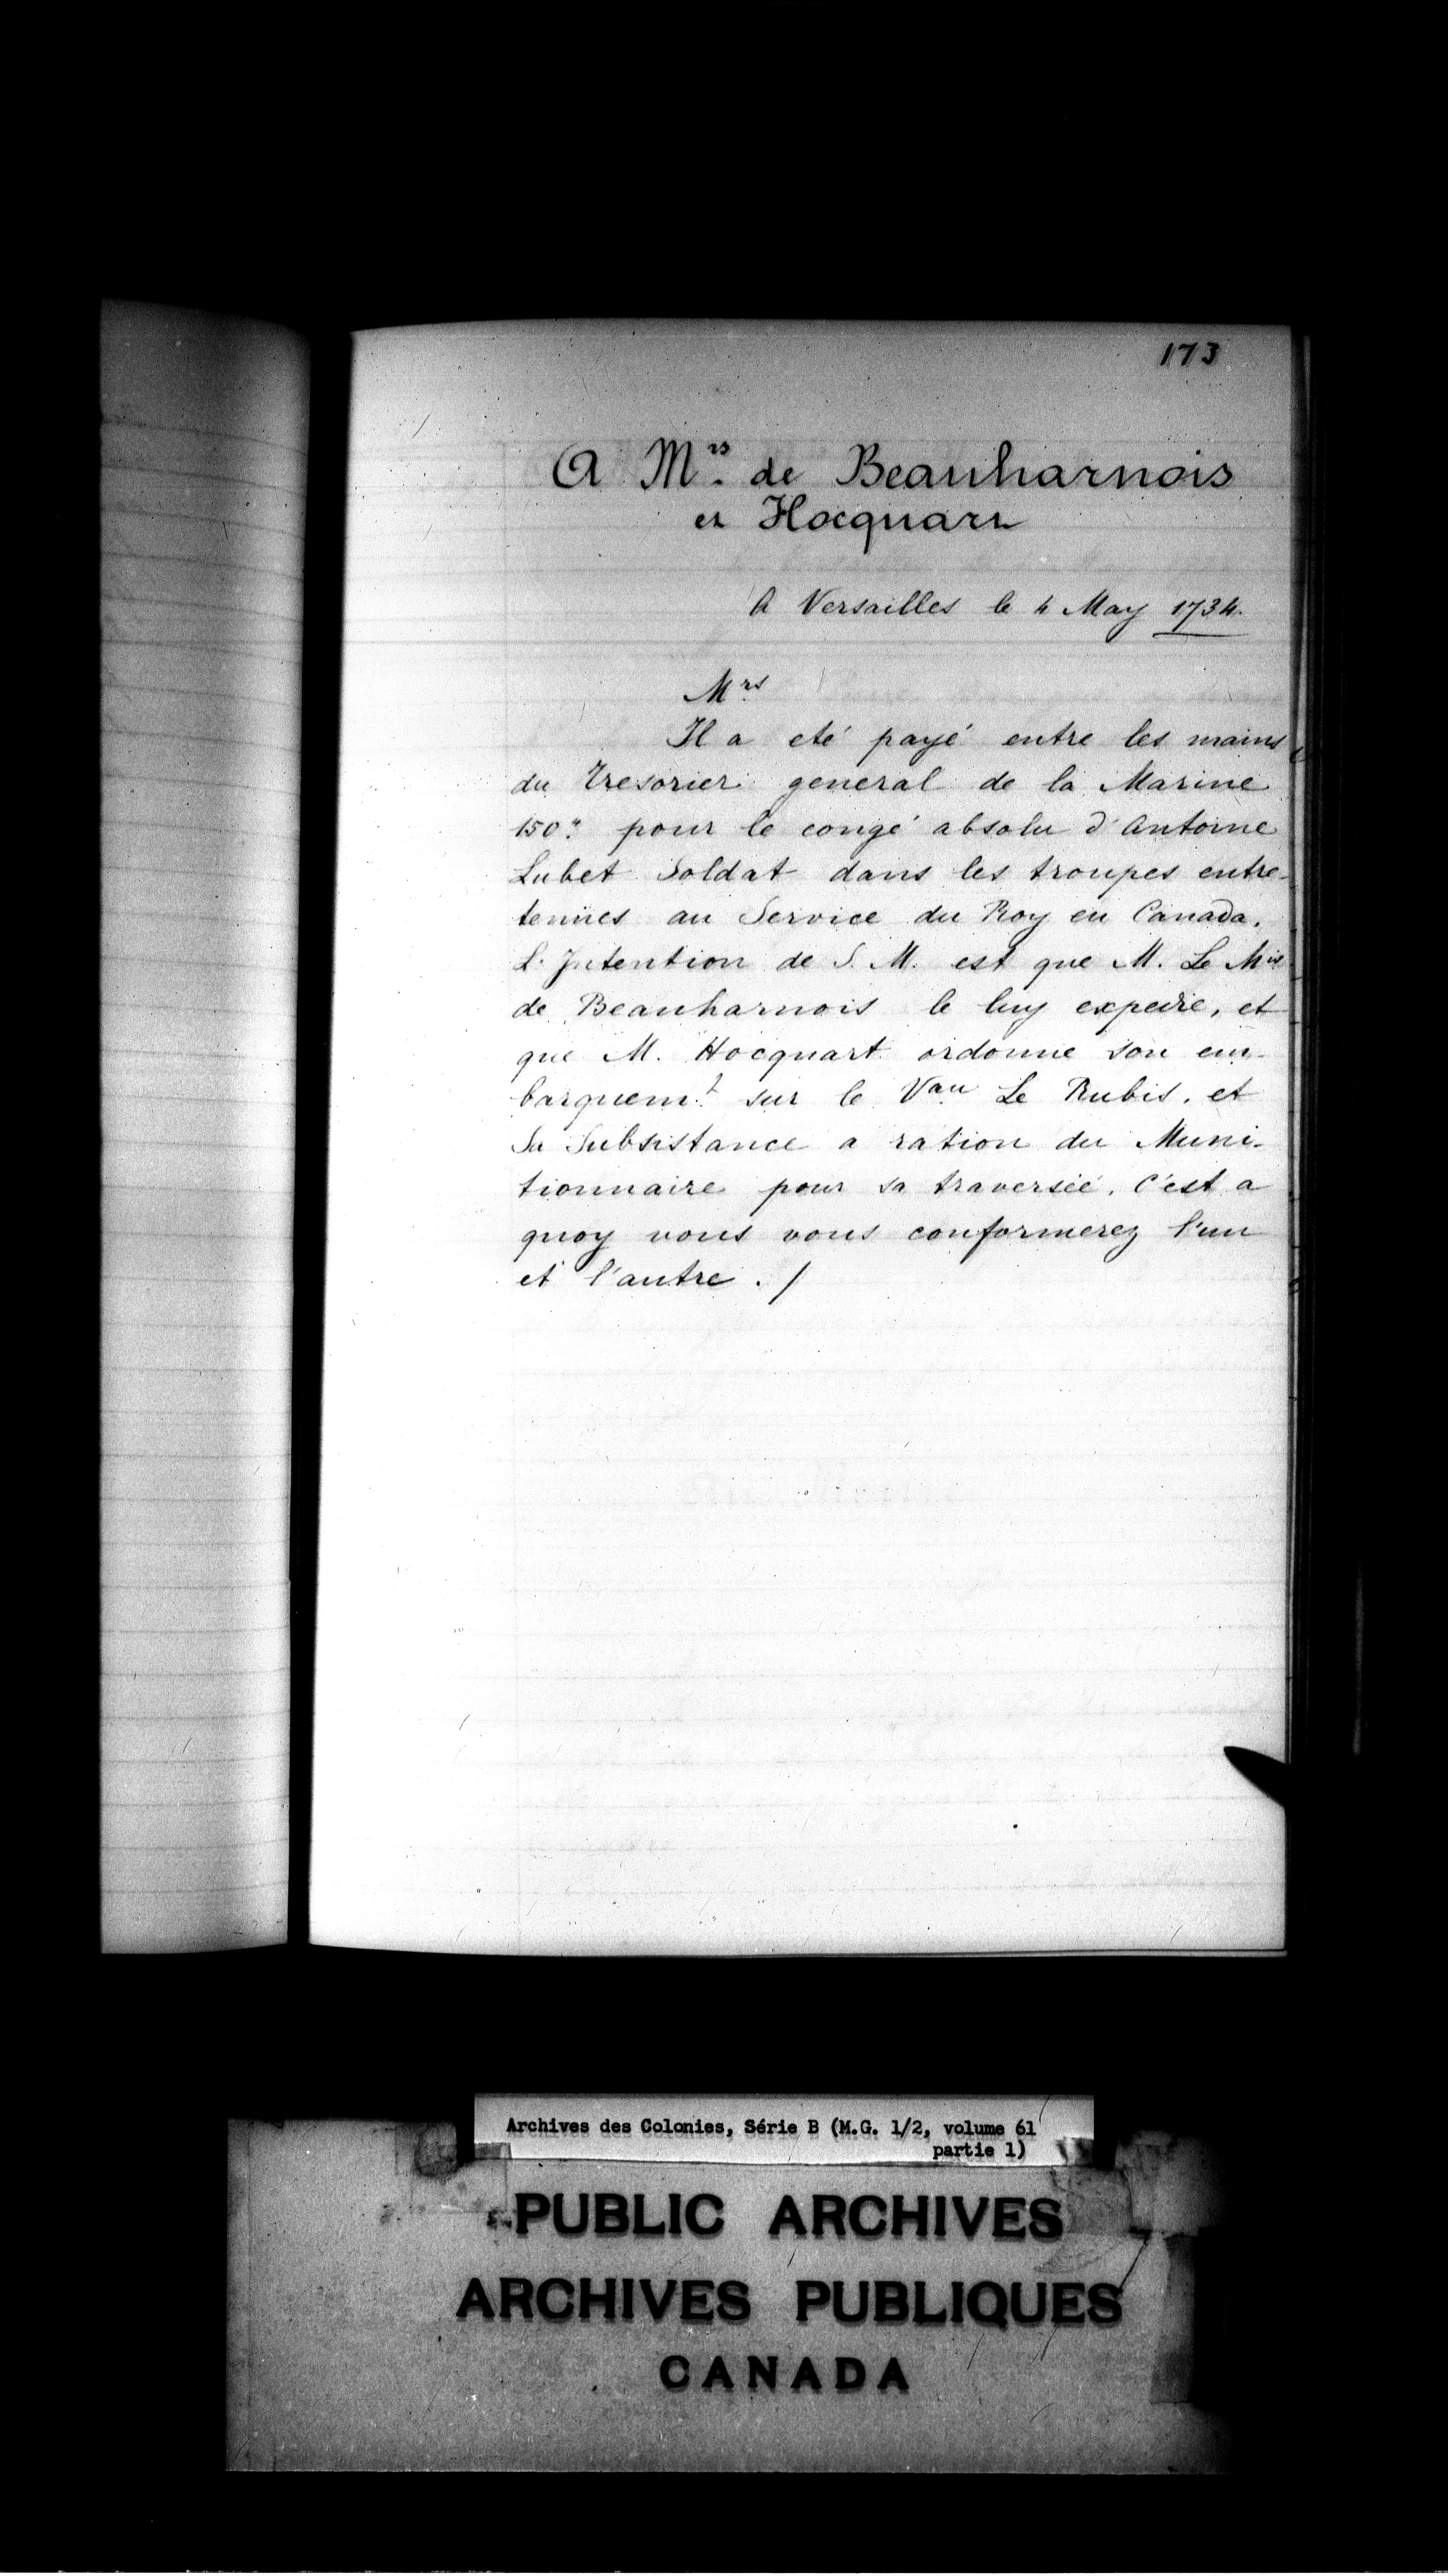 173
A Mrs de Beauharnois
et Hocquart
A Versailles le 4 May 1734.
Mrs
Il a eté payé entre les mains
du Tresorier general de la Marine
150.# pour le congé absolu d'Antoine
Lubet Soldat dans les troupes entre-
tenües au Service du Roy en Canada.
L'Intention de S. M. est que M. Le Mis
de Beauharnois le luy expedie, et
que M. Hocquart ordonne son em-
barquemt sur le Vau Le Rubis, et
Sa Subsistance a ration du Muni-
tionnaire pour sa traversée. C'est a
quoy vous vous conformerez l'un
et l'autre ./
Archives des Colonies, Série B (M.G. 1/2, volume 61
partie 1)
PUBLIC ARCHIVES
ARCHIVES PUBLIQUES
CANADA